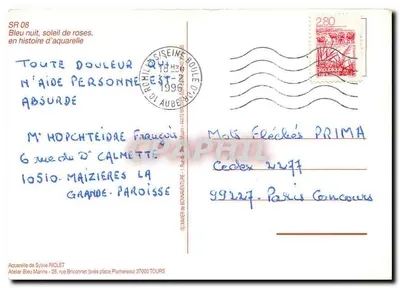 SR 08
Bleu nuit, soleil de roses,
en histoire d'aquarelle
TOUTE DOULEUR QUI
N'AIDE PERSONNE EST
ABSURDE
Mr HOPCHTEIDRE François
6 rue du Dr CALMETTE
10510. MAIZIERES LA
GRANDE-PAROISSE
10 ROMILLY S/SEINE BOULE D'OR
1996
AUBE
2,80
Mots Fléchés PRIMA
Cedex 2277
99227. Paris Concours
Aquarelle de Sylvie RIOLET
Atelier Bleu Marine - 25, rue Briconnet
37000 TOURS